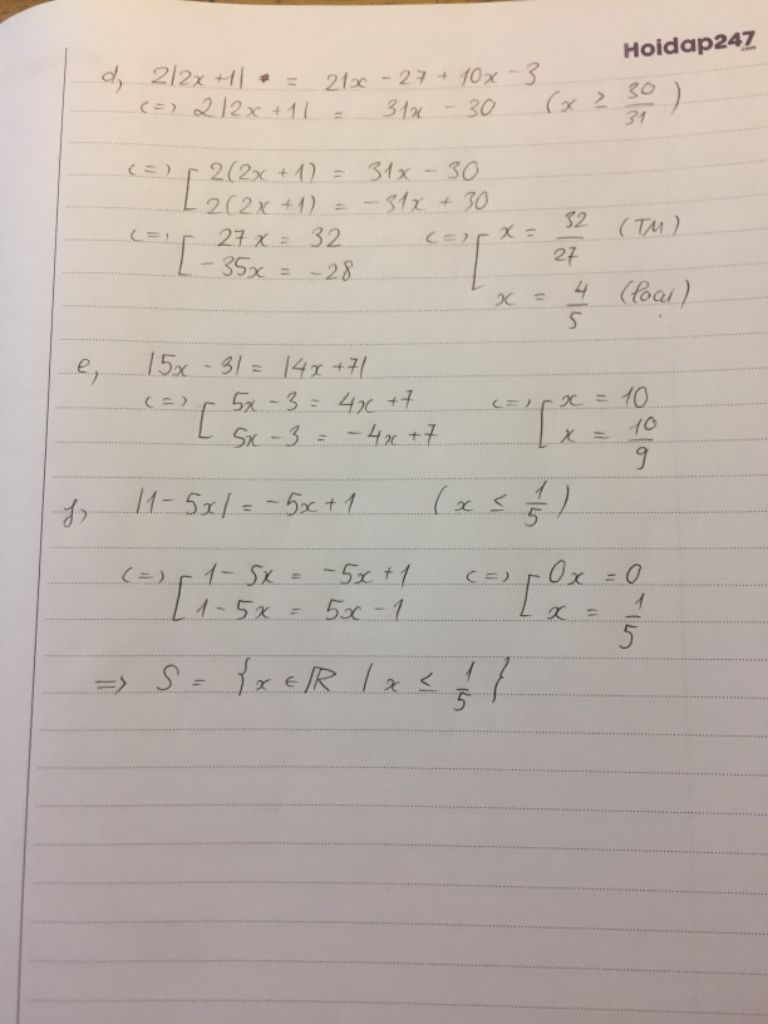 Hoidap247.com
d, 2|2x+1| = 21x - 27 + 10x - 3
<=> 2|2x+1| = 31x - 30 (x ≥ 30/31)
<=> [ 2(2x+1) = 31x - 30
2(2x+1) = -31x + 30
<=> [ 27x = 32 <=> [ x = 32/27 (TM)
-35x = -28
x = 4/5 (loại)
e, |5x - 3| = |4x+7|
<=> [ 5x - 3 = 4x+7 <=> [ x = 10
5x - 3 = -4x+7 x = 10/9
f, |1-5x| = -5x+1 (x ≤ 1/5)
<=> [ 1-5x = -5x+1 <=> [ 0x = 0
1-5x = 5x-1 x = 1/5
=> S = {x ∈ R | x ≤ 1/5}